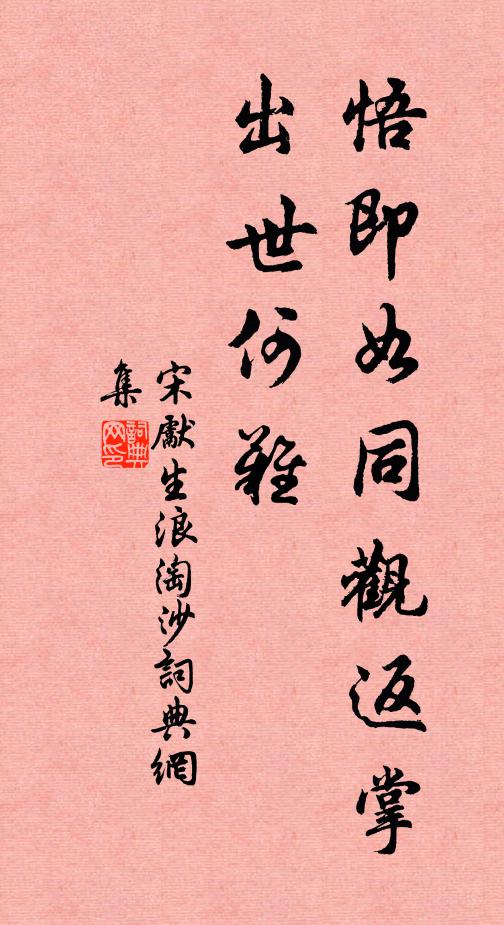 悟即如同觀返掌
出世何難
宋獻生浪淘沙詞典網
集
詞典网印